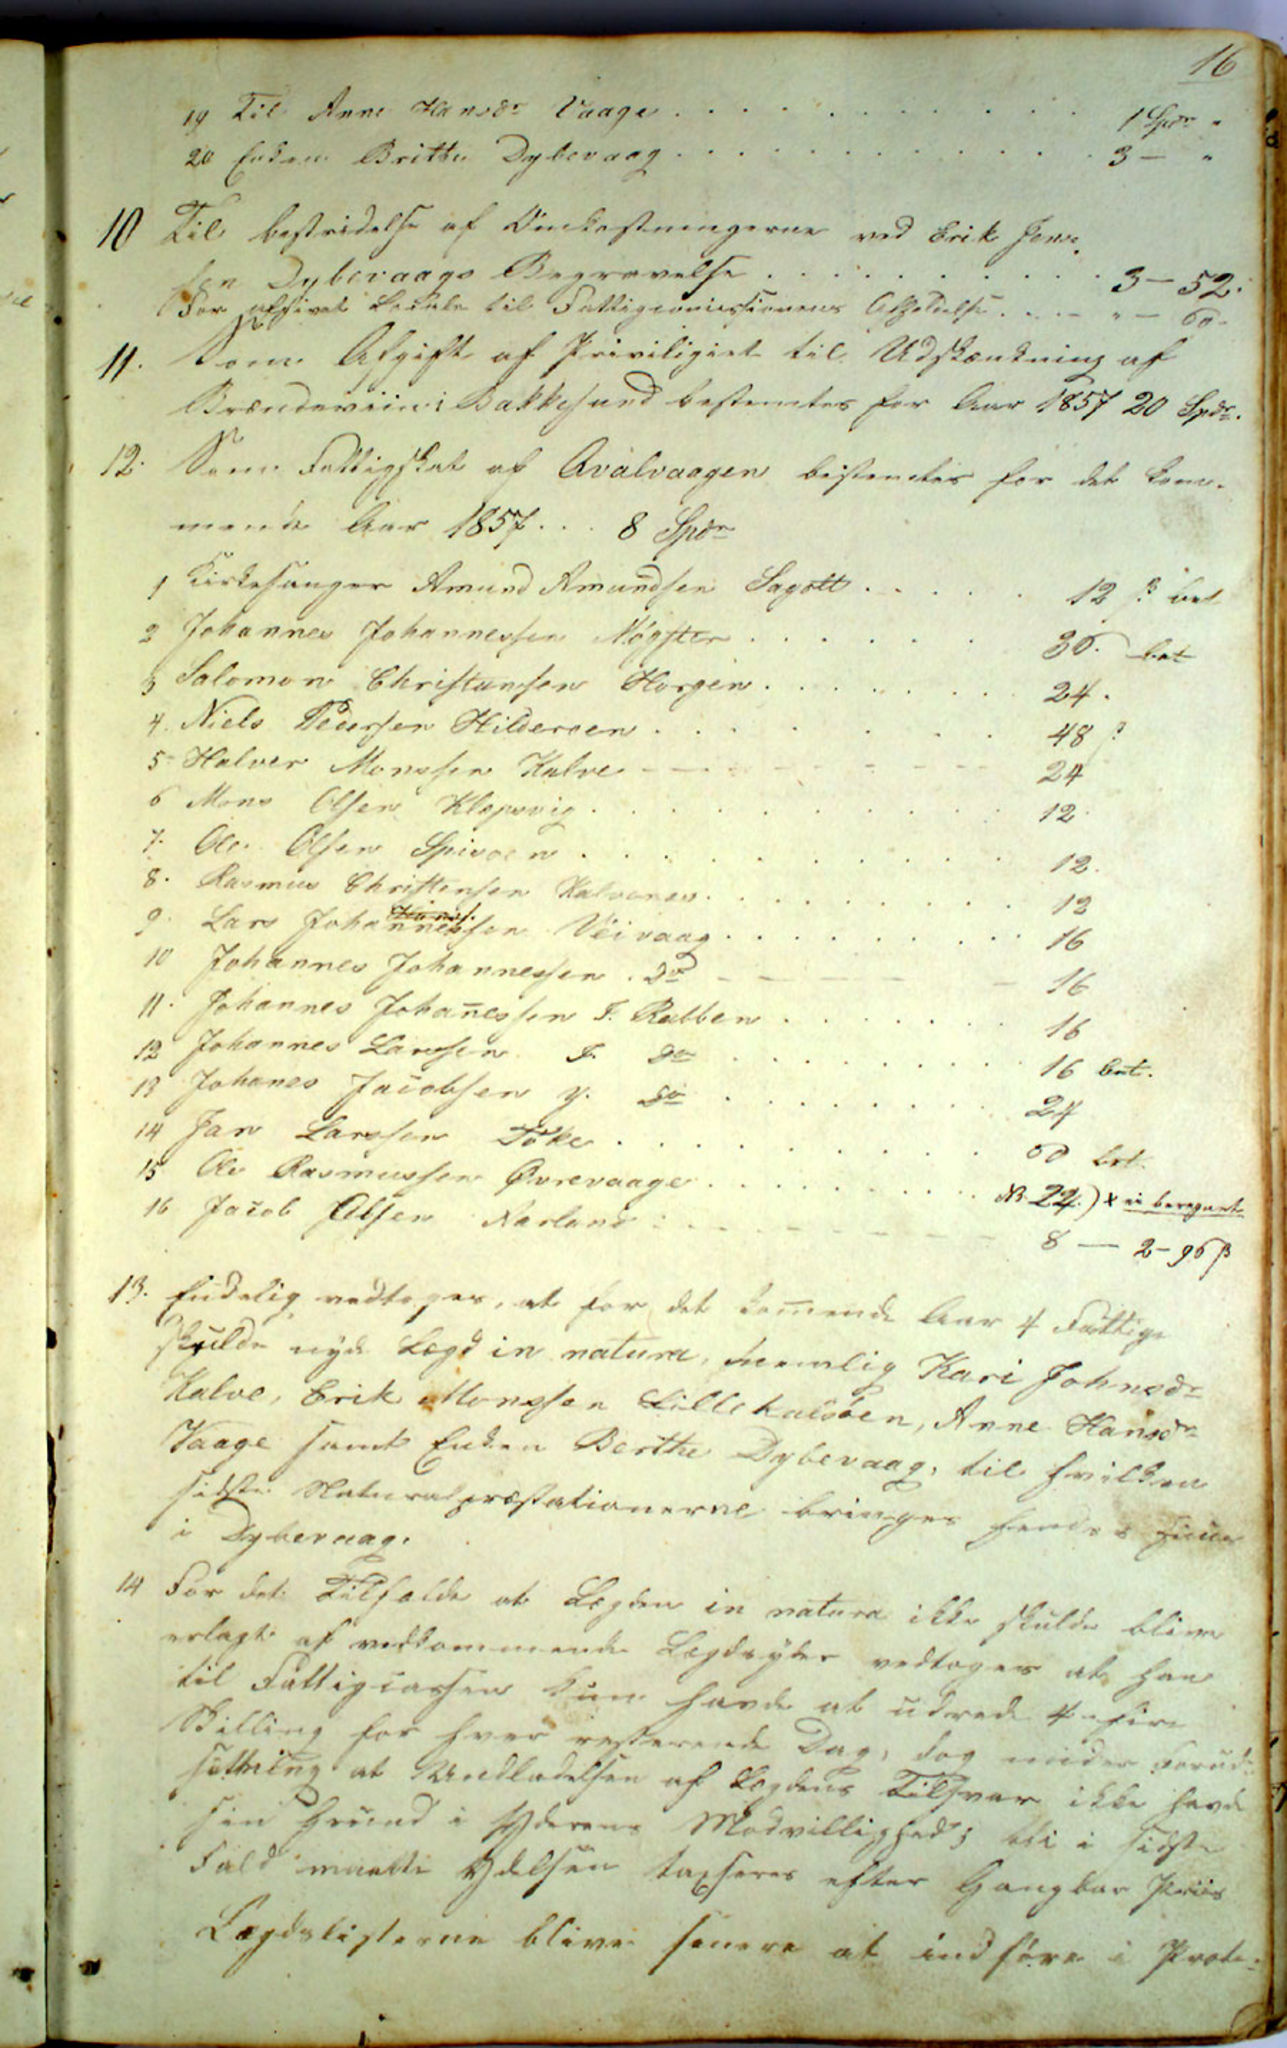 16
19 Til Anne Hansdr Vaage . . . . . . . . . . 1 Spdr "
20 Enken Britha Dybevaag . . . . . . . . . . 3 — "
10 Til bestridelse af Omkostningerne ved Erik Jens-
sen Dybevaags Begravelse . . . . . . . . . 3 — 52.
For afgivet Locale til Fattigcomissionens Afholdelse . . . " — 60.
11. Som Afgift af Priviligiet til Udskænkning af
Brændeviin i Bakkesund bestemtes for Aar 1857 20 Spdr.
12. Som Fattigskat af Qvalvaagen bestemtes for det kom-
mende Aar 1857 . . . 8 Spdr
1 Kirkesanger Amund Amundsen Lagott . . . . . 12 ß bet
2 Johannes Johannessen Møgster . . . . . . 36. bet
3 Salomon Christensen Horgen . . . . . . . 24.
4. Niels Pedersen Hilderøen . . . . . . . 48 ß
5 Halvor Monssen Kalve — — — — — — 24
6 Mons Olsen Klepsvig . . . . . . . . 12.
7. Ole Olsen Spiröen . . . . . . . . . 12.
8. Rasmus Christensen Kalvenes . . . . . . . 12
9. Lars Johannessen Veivaag . . . . . . . . 16
10 Johannes Johannessen do — — — — 16
11. Johannes Johannessen I. Rabben . . . . . . 16
12 Johannes Larssen I. do . . . . . . . 16 bet.
13 Johanes Jacobsen y. do . . . . . . . 24
14 Jan Larssen Töke . . . . . . . . . 60 bet.
15 Ole Rasmussen Øvrevaage . . . . . . . NB 24.) x ei beregnet
16 Jacob Olsen Narland : — — — — — 8 — 2 — 96 ß
13. Endelig vedtoges, at for det kommende Aar 4 Fattige
skulde nyde Lægd in natura, nemlig Kari Johnsdr
Kalve, Erik Monssen Lillekalsøen, Anne Hansdr
Vaage samt Enken Berthe Dybevaag, til hvilken
sidste Naturalpræstationerne bringes hendes Huus
i Dybevaag.
14 For det Tilfælde at Lægden in natura ikke skulde blive
erlagt af vedkommende Lægdsyder vedtoges at han
til Fattigcassen kun havde at udrede 4 — fire
Skilling for hver resterende Dag, dog under Forud-
sætning at Undladelsen af Lægdens Tilsvar ikke havde
sin Grund i Yderens Modvillighed; thi i sidste
Fald maatte Ydelsen taxseres efter Gangbar Priis
Lægdslisterne blive senere at indføre i Proto-